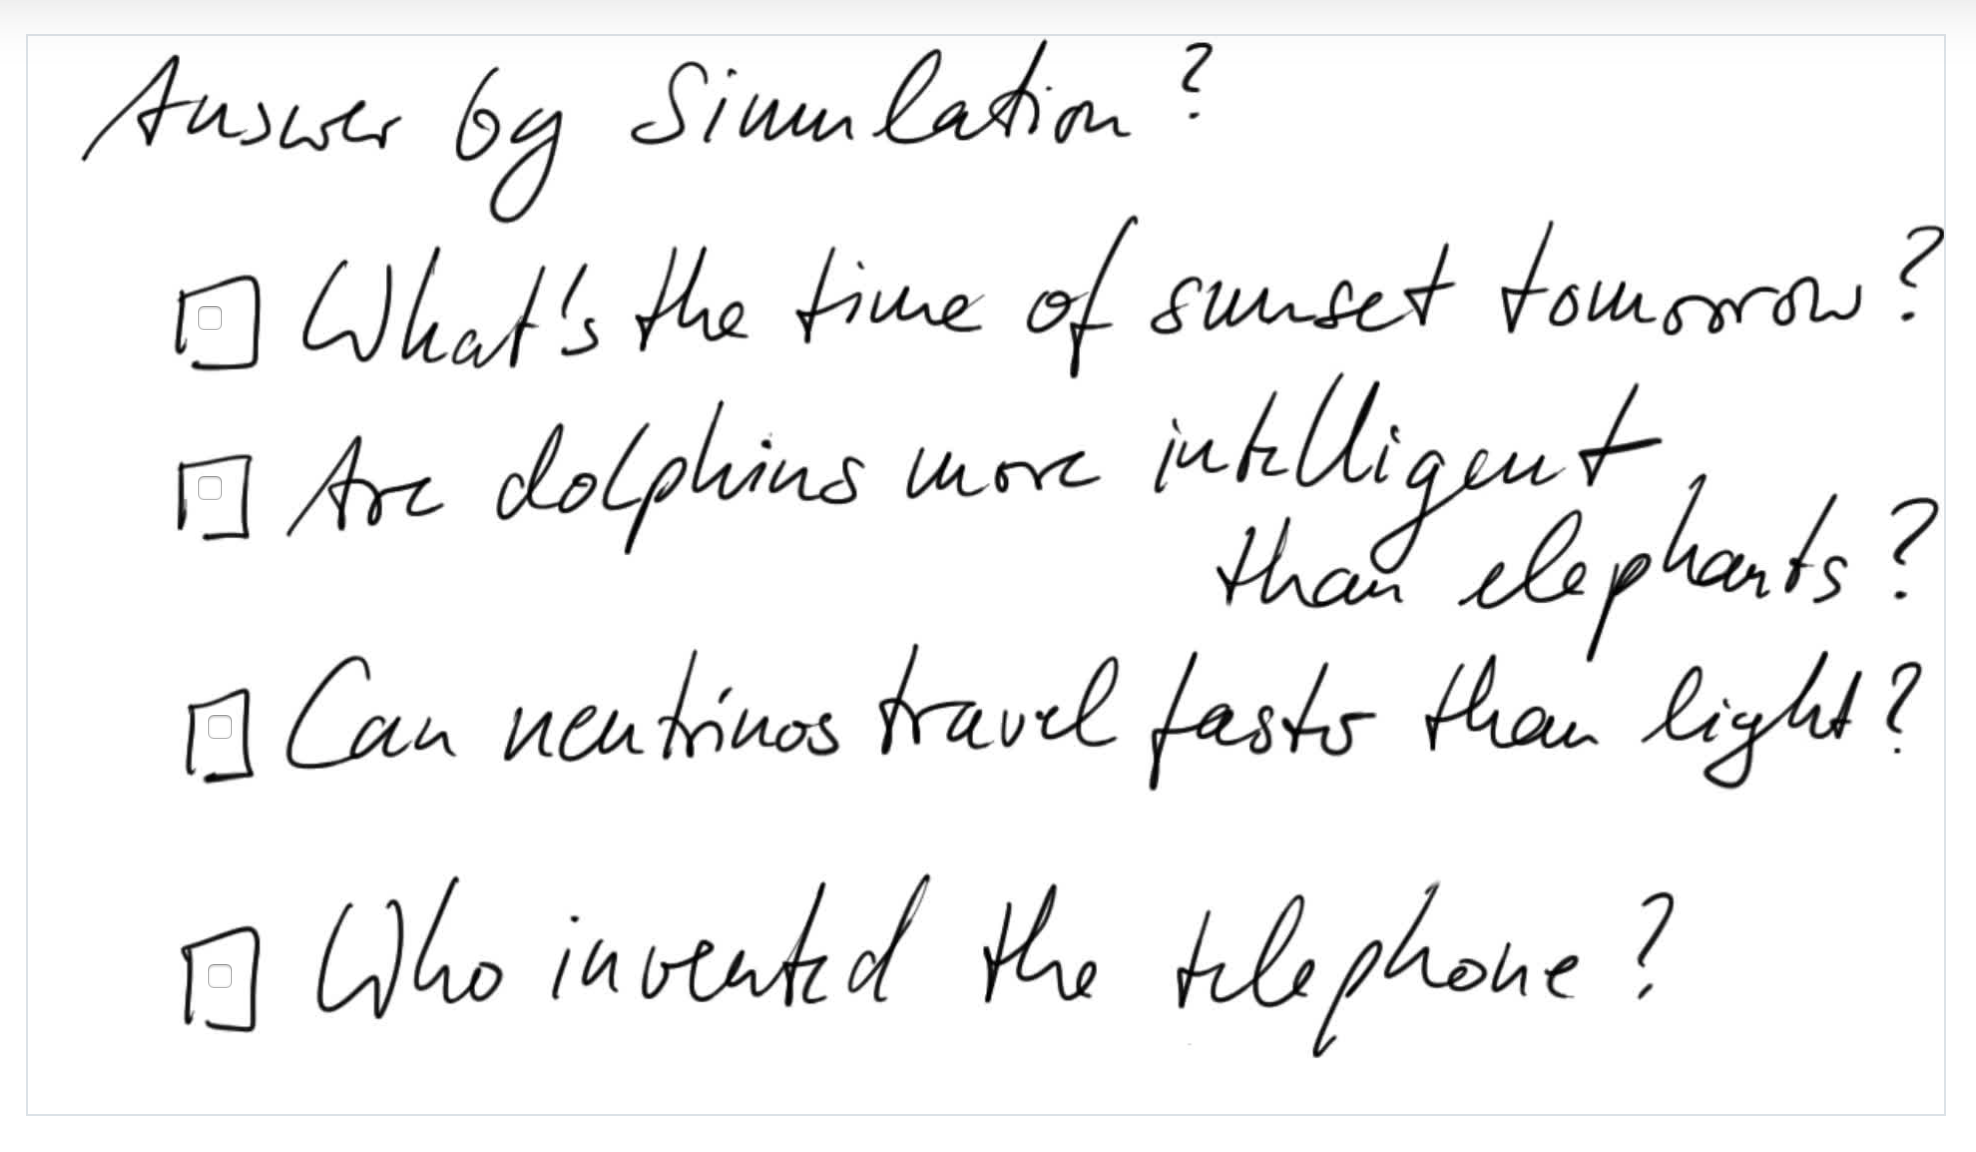 Answer by Simulation?
What's the time of sunset tomorrow?
Are dolphins more intelligent
than elephants?
Can neutrinos travel faster than light?
Who invented the telephone?